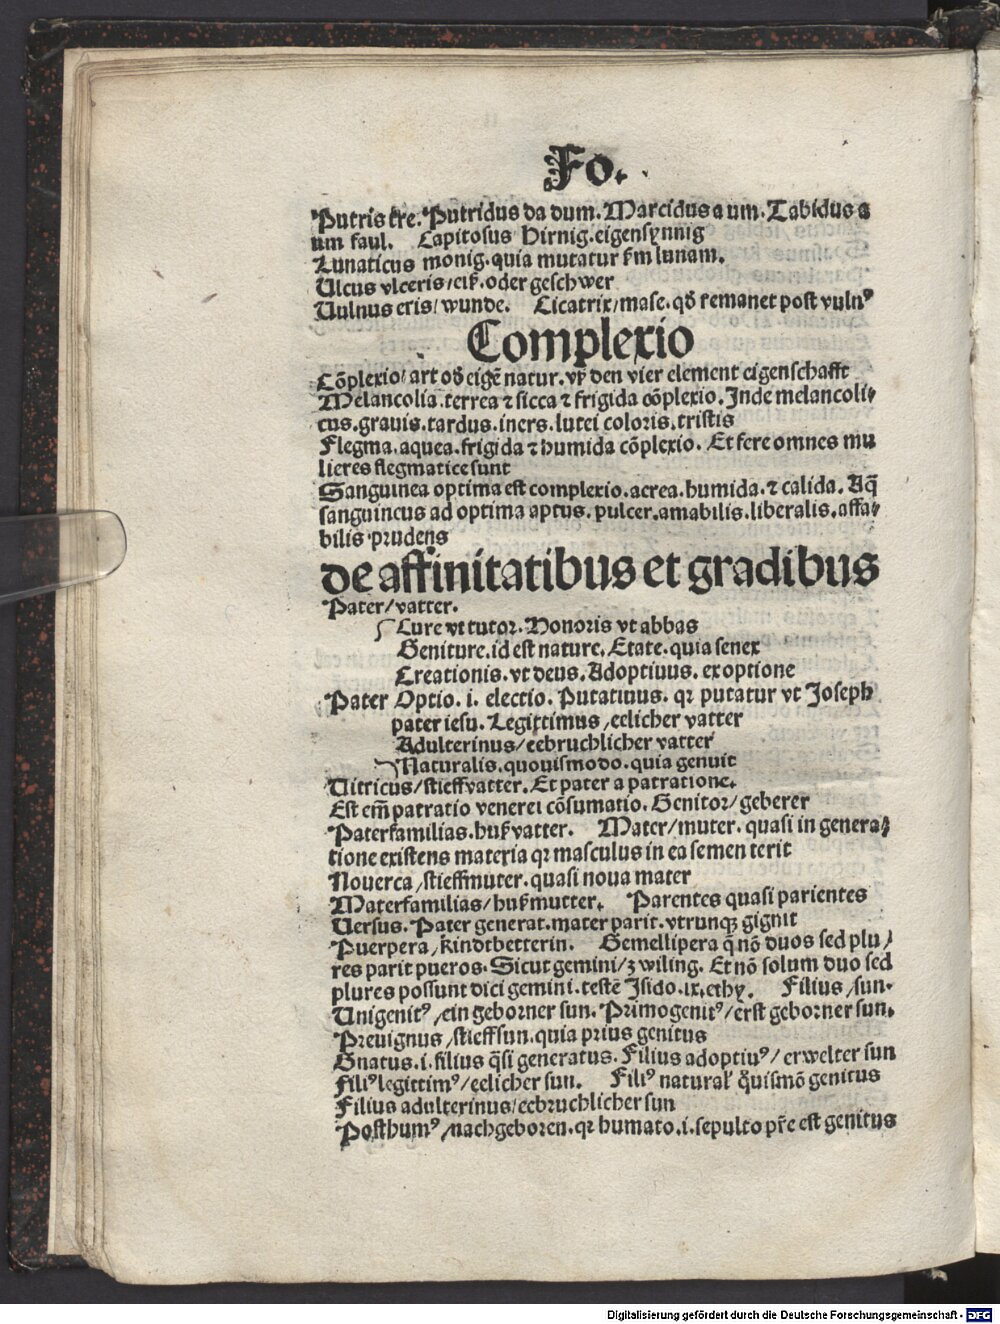 Fo.
Putris tre. Putridus da dum. Marcidus a um. Tabidus a
um faul. Capitosus Hirnig. eigensynnig
Lunaticus monig. quia mutatur ẜm lunam.
Ulcus vlceris/ eiß. oder geschwer
Uulnus eris/ wunde. Cicatrix/ mase. qđ remanet post vulnꝰ
Complexio
Cōplexio/ art ođ eigē natur. vß den vier element eigenschafft
Melancolia. terrea ⁊ sicca ⁊ frigida cōplexio. Inde melancoli-
cus. grauis. tardus. iners. lutei coloris. tristis
Flegma. aquea. frigida ⁊ humida cōplexio. Et fere omnes mu
lieres flegmatice sunt
Sanguinea optima est complexio. aerea. humida. ⁊ calida. Aq̄
sanguineus ad optima aptus. pulcer. amabilis. liberalis. affa-
bilis prudens
de affinitatibus et gradibus
Pater/ vatter.
Cure vt tutor. Honoris vt abbas
Geniture. id est nature. Etate. quia senex
Creationis. vt deus. Adoptiuus. ex optione
Pater Optio. i. electio. Putatiuus. qꝛ putatur vt Joseph
pater iesu. Legittimus/ eelicher vatter
Adulterinus/ eebruchlicher vatter
Naturalis. quouismodo. quia genuit
Uitricus/ stieffvatter. Et pater a patratione.
Est em̄ patratio venerei cōsumatio. Genitor/ geberer
Paterfamilias. hußvatter. Mater/ muter. quasi in genera-
tione existens materia qꝛ masculus in ea semen terit
Nouerca/ stieffmuter. quasi noua mater
Materfamilias/ hußmutter. Parentes quasi parientes
Uersus. Pater generat. mater parit. vtrunqꝫ gignit
Puerpera/ kindtbetterin. Gemellipera q̄ nō duos sed plu/
res parit pueros. Sicut gemini/ zwiling. Et nō solum duo sed
plures possunt dici gemini. testē Isido. ix. ethy. Filius/ sun.
Unigenitꝰ/ ein geborner sun. Primogenitꝰ/ erst geborner sun.
Preuignus/ stieffsun. quia prius genitus
Gnatus. i. filius q̄si generatus. Filius adoptiuꝰ/ erwelter sun
Filiꝰ legittimꝰ/ eelicher sun. Filiꝰ natural' q̄uismō genitus
Filius adulterinus/ eebruchlicher sun
Posthumꝰ/ nachgeboren. qꝛ humato. i. sepulto pr̄e est genitus
Digitalisierung gefördert durch die Deutsche Forschungsgemeinschaft - DFG